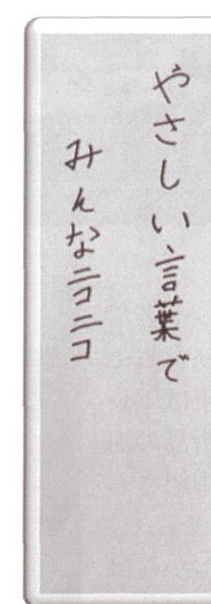 やさしい言葉で
みんなニコニコ